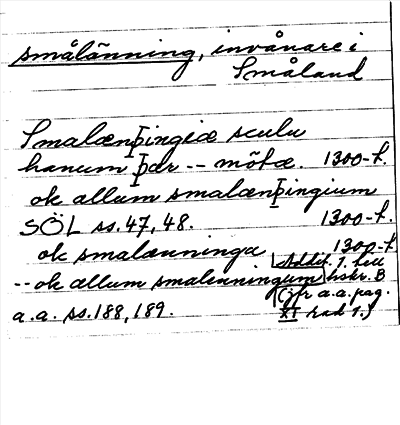 smålänning, invånare i
Småland
Smalænþingiæ sculu
hanum þær -- möta. 1300-t.
ok allum smalænþingium
SÖL ss. 47, 48. 1300-t.
ok smalænninga 1300-t
Addit. 1. till
-- ok allum smalenningum hskr. B
(jfr a.a. pag.
a.a. ss. 188, 189. XI rad 1.)